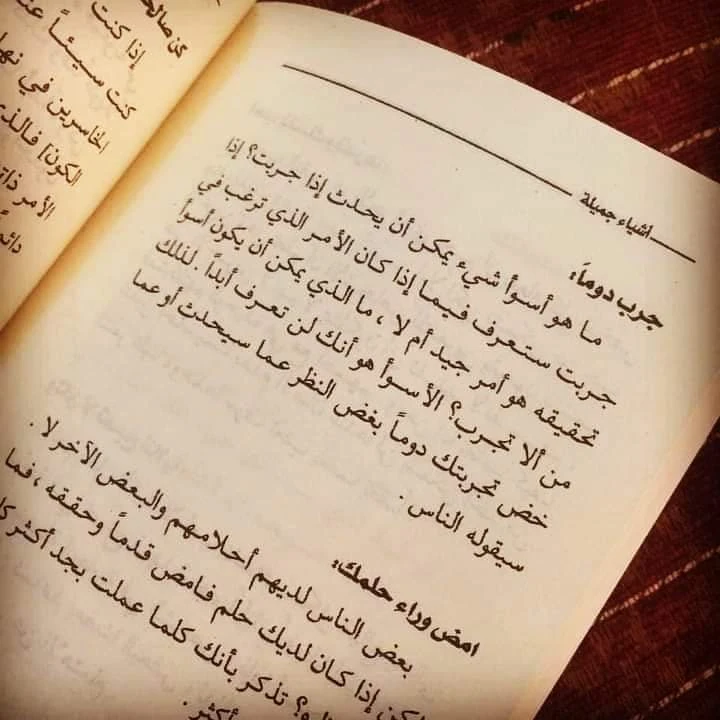 أشياء جميلة
جرب دوماً:
ما هو أسوأ شيء يمكن أن يحدث إذا جربت؟ إذا
جربت ستعرف فيما إذا كان الأمر الذي ترغب في
تحقيقه هو أمر جيد أم لا ، ما الذي يمكن أن يكون أسوأ
من ألا تجرب؟ الأسوأ هو أنك لن تعرف أبداً . لذلك
خض تجربتك دوماً بغض النظر عما سيحدث أو عما
سيقوله الناس .
امض وراء حلمك:
بعض الناس لديهم أحلامهم والبعض الآخر لا .
لكن إذا كان لديك حلم فامض قدماً وحققه ، فما
تذكر بأنك كلما عملت بجد أكثر
أكثر .
إذا كنت
كنت سيئاً
الخاسرين في
الكون! فالذي
الأمر